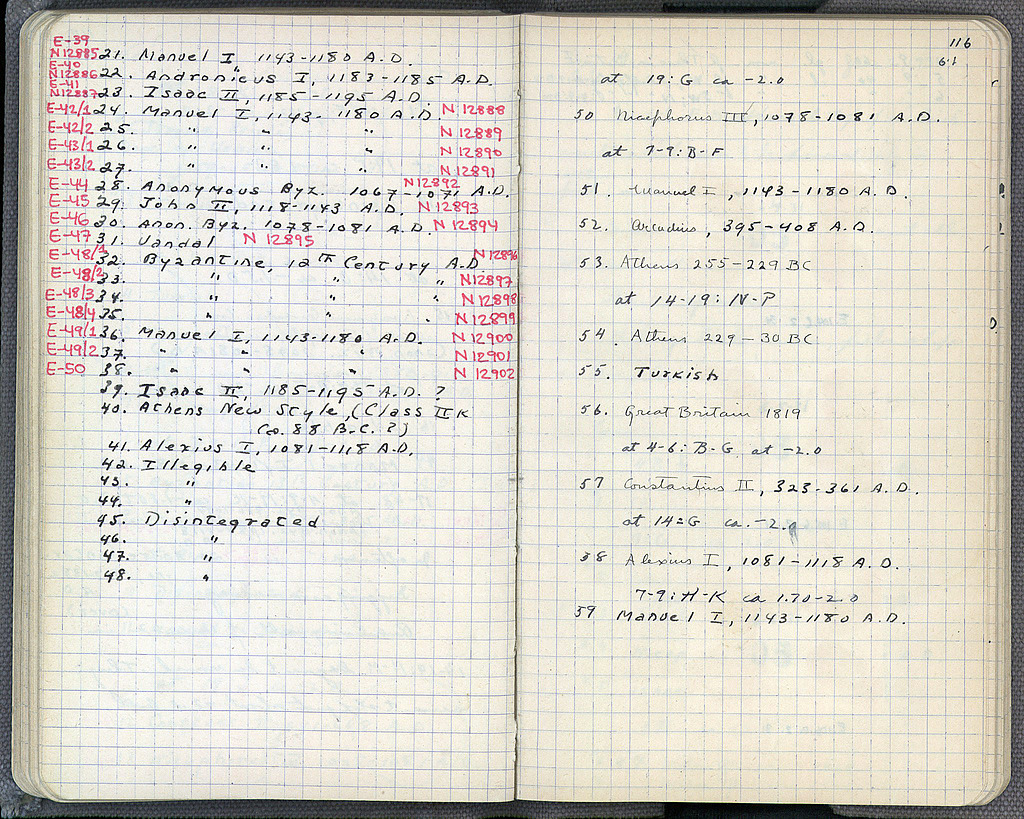 E-39
N12885 21. Manuel I, 1143-1180 A.D.
E-40
N12886 22. Andronicus I, 1183-1185 A.D.
E-41
N12887 23. Isaac II, 1185-1195 A.D.
E-42/1 24. Manuel I, 1143-1180 A.D. N 12888
E-42/2 25. " " " N 12889
E-43/1 26. " " " N 12890
E-43/2 27. " " " N 12891
E-44 28. Anonymous Byz. 1067-1071 A.D. N 12892
E-45 29. John II, 1118-1143 A.D. N 12893
E-46 30. Anon. Byz. 1078-1081 A.D. N 12894
E-47 31. Vandal N 12895
E-48/1 32. Byzantine, 12th Century A.D. N 12896
E-48/2 33. " " " N 12897
E-48/3 34. " " " N 12898
E-48/4 35. " " " N 12899
E-49/1 36. Manuel I, 1143-1180 A.D. N 12900
E-49/2 37. " " " " N 12901
E-50 38. " " " N 12902
39. Isaac II, 1185-1195 A.D. ?
40. Athens New Style, (Class II K
Ca. 88 B.C. ?)
41. Alexius I, 1081-1118 A.D.
42. Illegible
43. "
44. "
45. Disintegrated
46. "
47. "
48. "
116
61
at 19:G ca -2.0
50 Nicephorus III, 1078-1081 A.D.
at 7-9:B-F
51. Manuel I, 1143-1180 A.D.
52. Arcadius, 395-408 A.D.
53. Athens 255-229 BC
at 14-19: N-P
54. Athens 229-30 BC
55. Turkish
56. Great Britain 1819
at 4-6: B-G at -2.0
57 Constantius II, 323-361 A.D.
at 14=G ca. -2.0
58 Alexius I, 1081-1118 A.D.
7-9: H-K ca 1.70-2.0
59 Manuel I, 1143-1180 A.D.